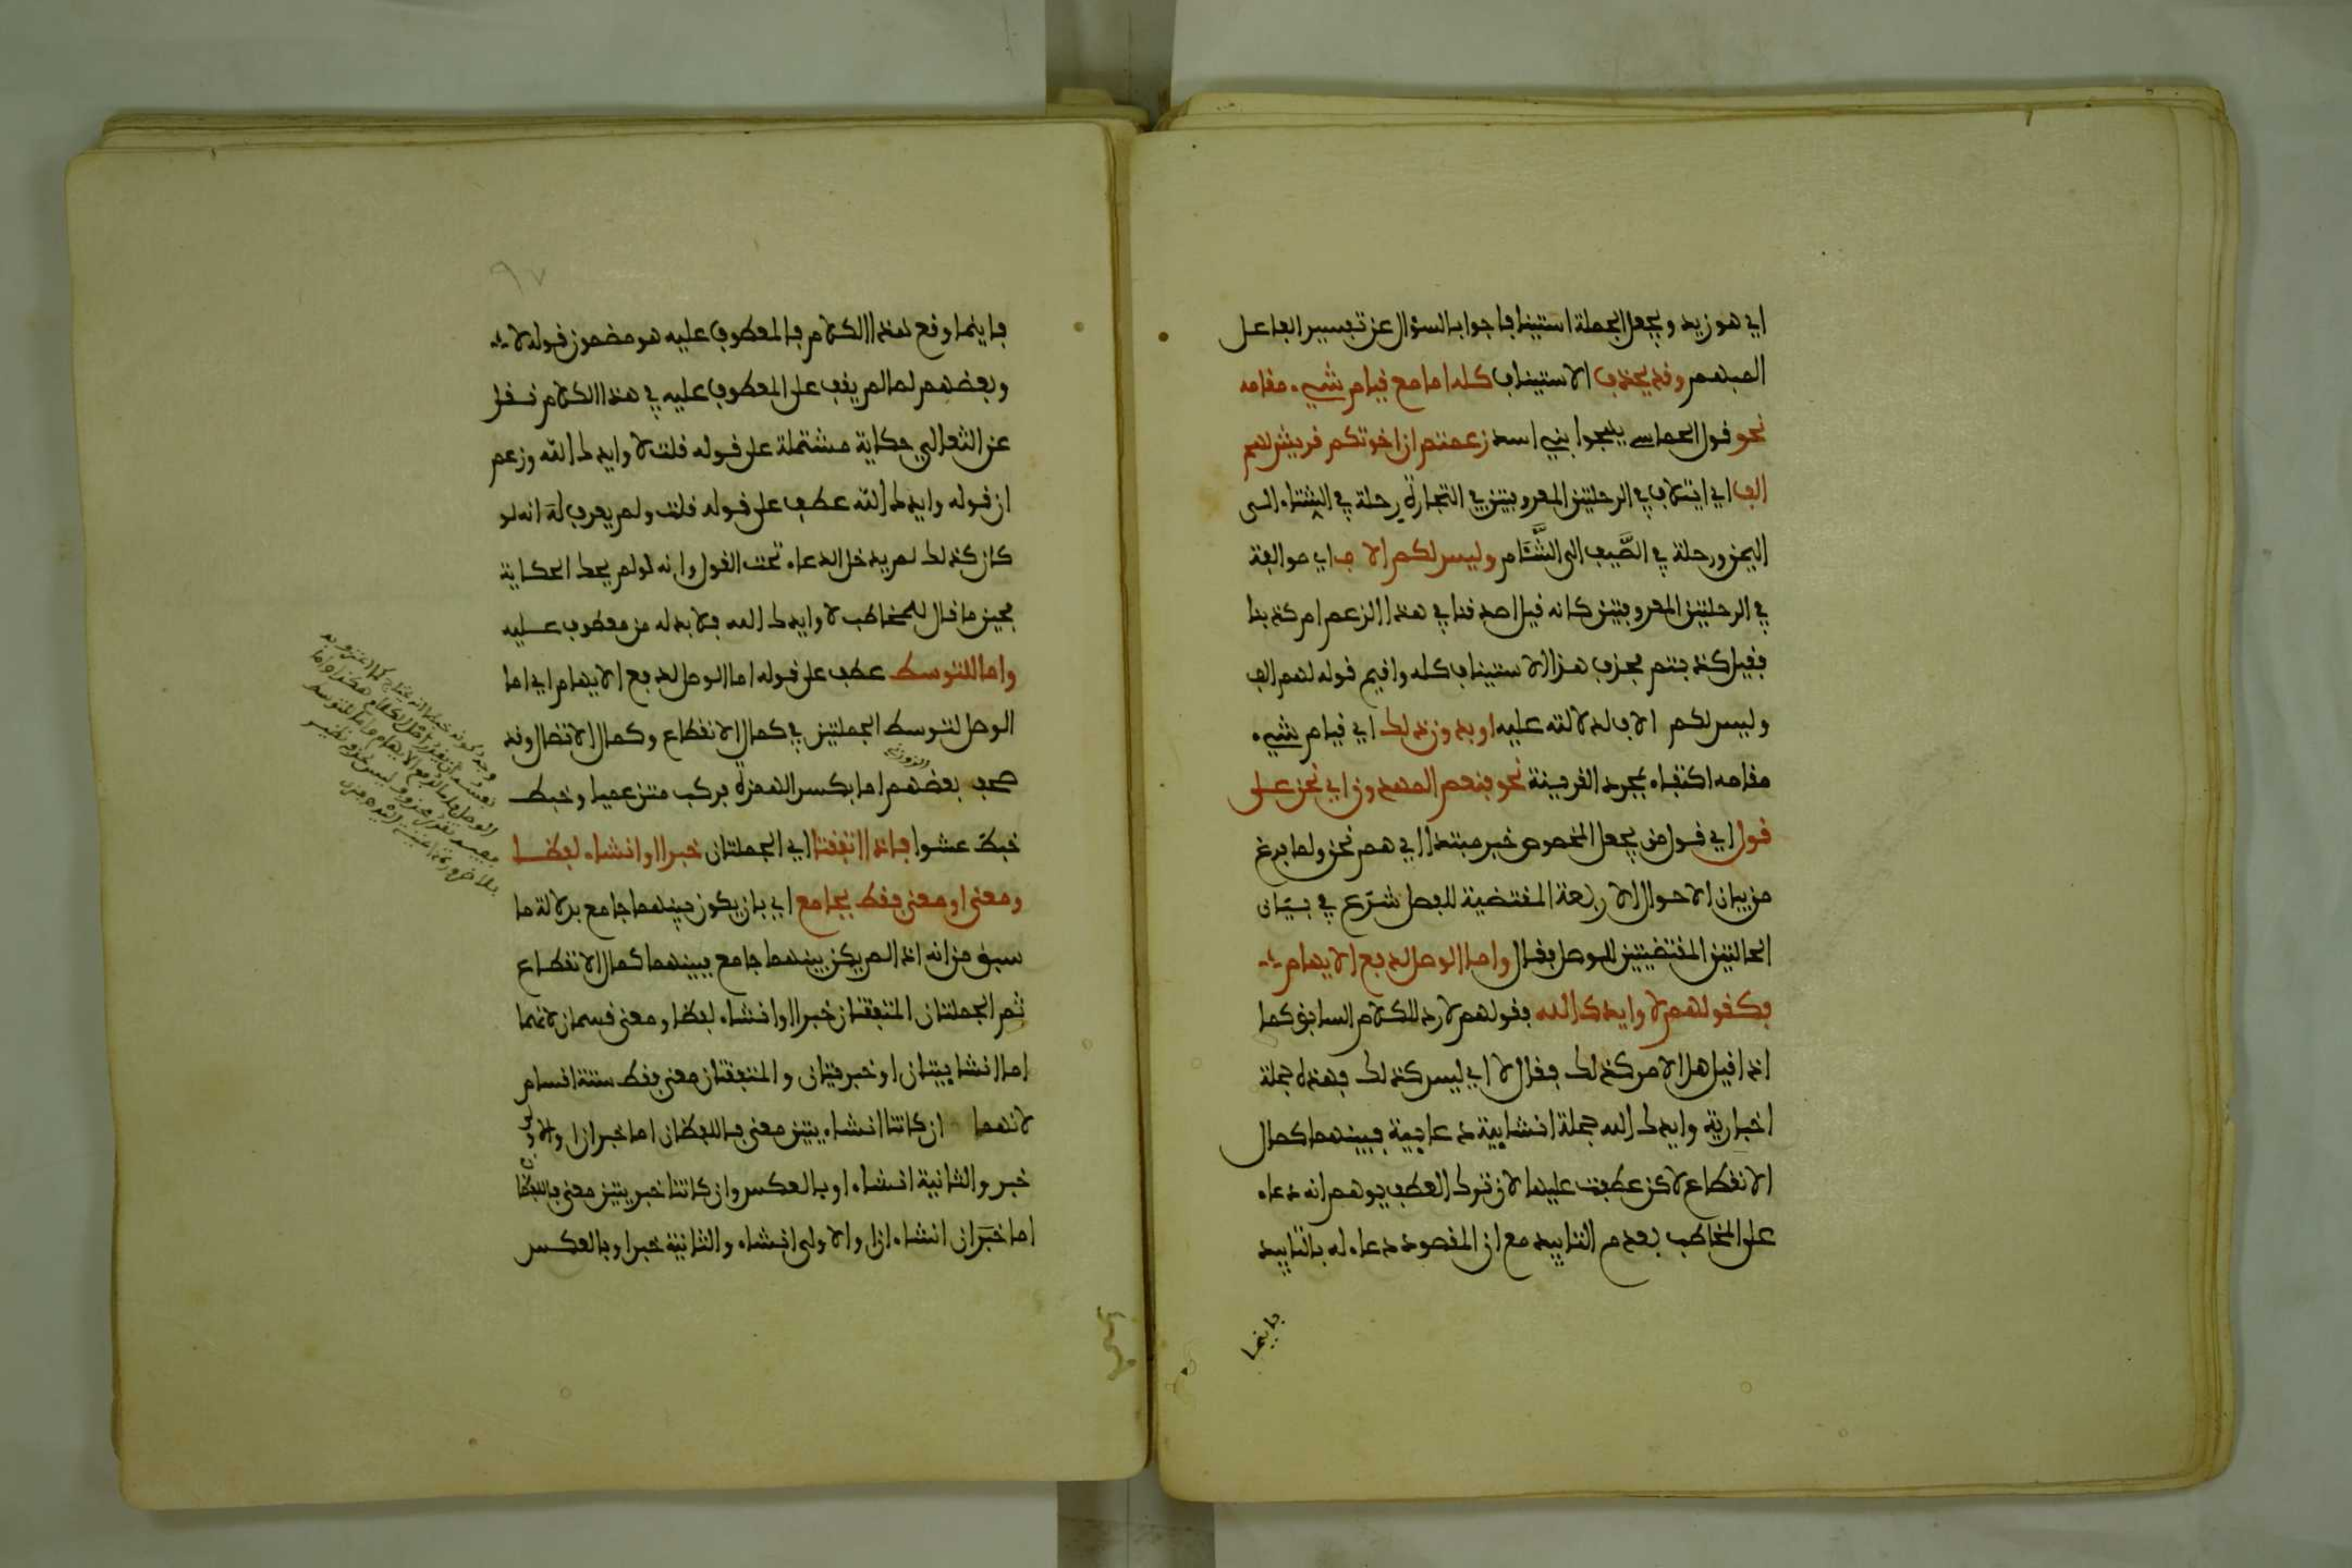 اي هو زيد ويجعل الجملة استينافا جواب السؤال عن تفسير الفاعل
المبهم وقد يحذف الاستيناف كله اما مع قيام شيء مقامه
نحو قول الحماسي يهجوا بني اسد زعمتم ان اخوتكم قريش لهم
الف اي ايتلاف في الرحلتين المعروفتين في التجارة رحلة في الشتاء الى
اليمن ورحلة في الصَّيف الى الشَّام وليس لكم الاف اي موالفة
في الرحلتين المعروفتين كانه قيل اصدقنا في هذا الزعم ام كذبنا
فقيل كذبتم فحذف هذا الاستيناف كله واقيم قوله لهم الف
وليس لكم الاف لدلالته عليه او بدون ذلك اي قيام شيء
مقامه اكتفاء بمجرد القرينة نحو فنعم الماهدون اي نحن على
قول اي قول من يجعل المخصوص خبر مبتدا اي هم نحن ولما فرغ
من بيان الاحوال الاربعة المقتضية للفصل شرع في بيان
الحالتين المقتضيتين للوصل فقال واما الوصل لدفع الايهام
فكقولهم لا وايدك الله فقولهم لا رد للكلام السابق كما
اذا قيل هل الامر كذلك فقال لا اي ليس كذلك فهذه جملة
اخبارية وايدك الله جملة انشايية دعايية فبينهما كمال
الانقطاع لاكن عطفت عليها لان ترك العطف يوهم انه دعاء
على المخاطب بعدم التاييد مع ان المقصود دعاء له بالتاييد
فاينما
٩٧
فاينما وقع هذا الكلام فالمعطوف عليه هو مضمون قوله لا
وبعضهم لما لم يقف على المعطوف عليه في هذا الكلام نقل
عن الثعالبي حكاية مشتملة على قوله قلت لا وايدك الله وزعم
ان قوله وايدك الله عطف على قوله قلت ولم يعرف انه لو
كان كذلك لم يدخل الدعاء تحت القول وانه لو لم يحك الحكاية
فحين ما قال للمخاطب لا وايدك الله فلا بد له من معطوف عليه
واما للتوسط عطف على قوله اما الوصل لدفع الايهام اي اما
الوصل لتوسط الجملتين في كمال الانقطاع وكمال الاتصال وقد
صحف بعضهم اما بكسر الهمزة فركب متن عميا وخبط
الزوزني
خبط عشوا فاذا اتفقتا اي الجملتان خبرا او انشاء لفظا
ومعنى او معنى فقط بجامع اي بان يكون بينهما جامع بدلالة ما
سبق من انه اذا لم يكن بينهما جامع فبينهما كمال الانقطاع
ثم الجملتان المتفقتان خبرا او انشاء لفظا ومعنى قسمان لانهما
اما انشاييتان او خبريتان والمتفقتان معنى فقط ستة اقسام
لانهما ان كانتا انشاييتين معنى فاللفظان اما خبران او الاولى
خبر والثانية انشاء او بالعكس وان كانتا خبريتين معنى فاللفظان
اما خبَران انشاءان او الاولى انشاء والثانية خبرا وبالعكس